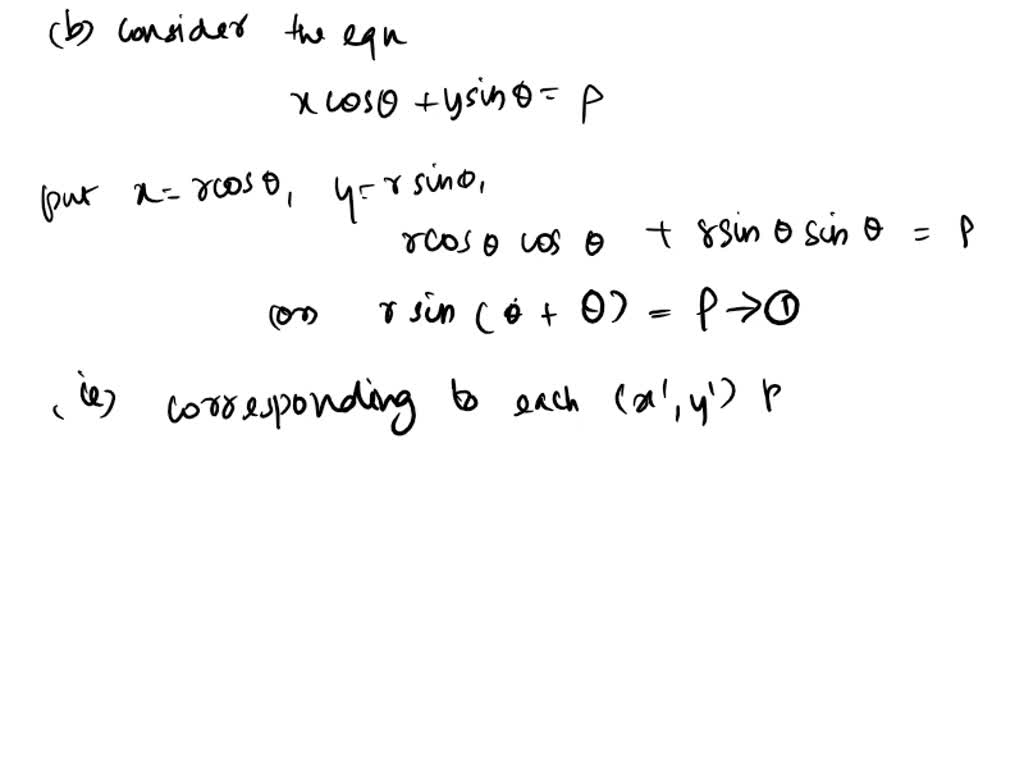 (b) Consider the eqn
x cosθ + y sinθ = p
put x = r cosθ, y = r sinθ,
r cosθ cosθ + r sinθ sinθ = p
(or) r sin(θ + θ) = p → ①
(ie) corresponding to each (x', y') p